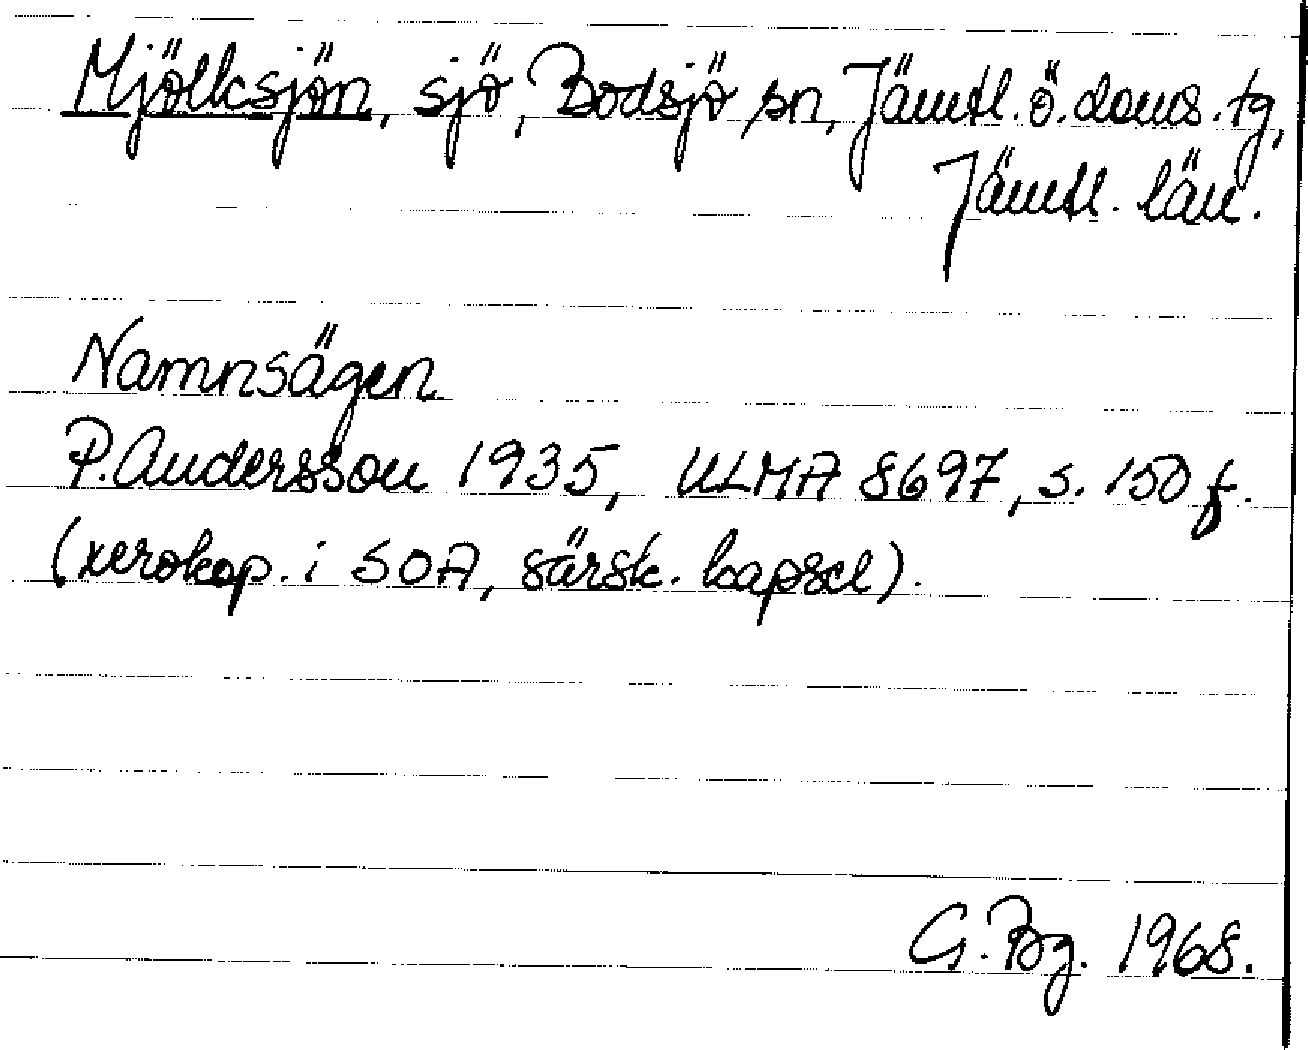 Mjölksjön, sjö, Bodsjö sn, Jämtl. ö. doms. tg,
Jämtl. län.
Namnsägen
P. Andersson 1935, ULMA 8697, s. 150 f.
(xerokop. i SOA, särsk. kapsel).
G. Bg. 1968.